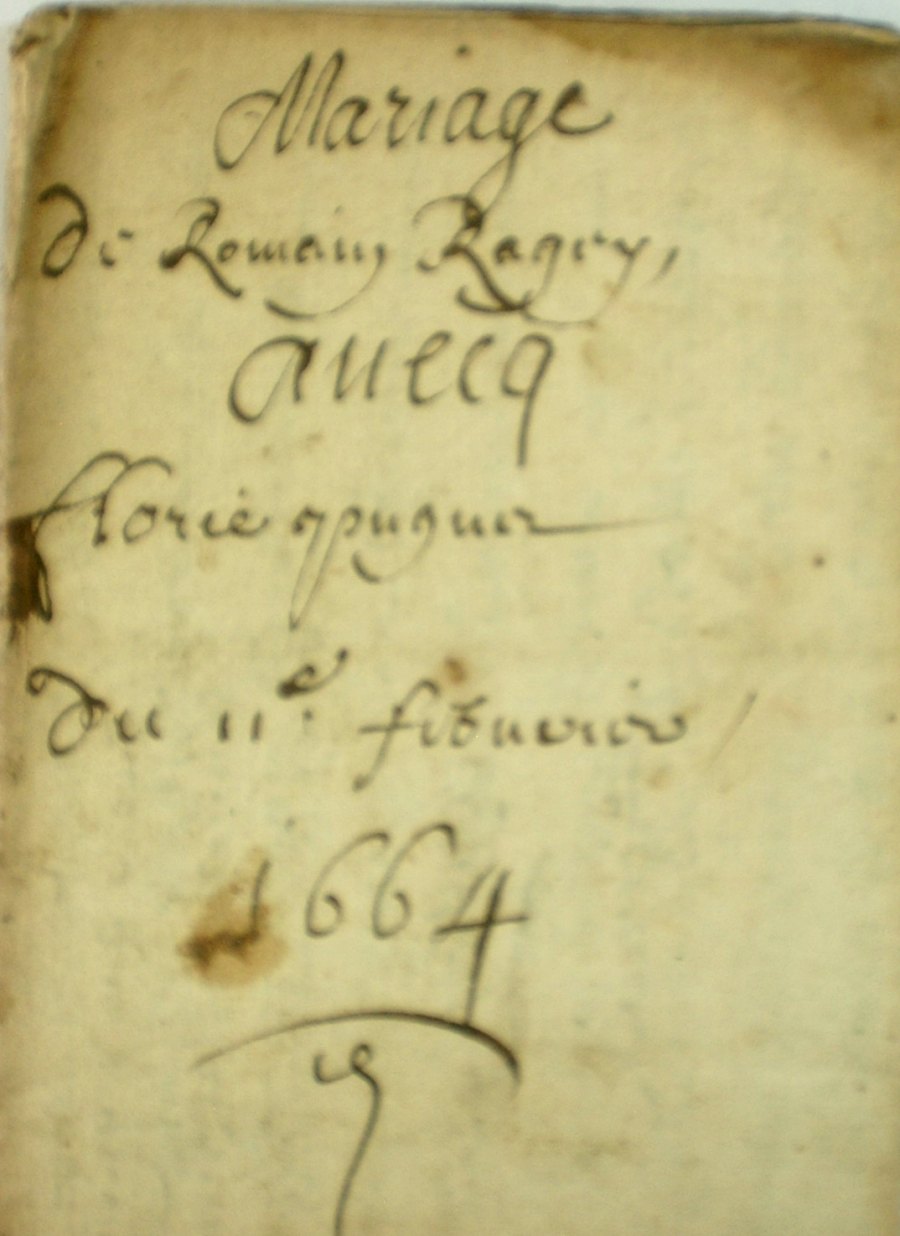 Mariage
De Romain Ragey,
auecq
fflorie
Du 11e. febuvrier
1664